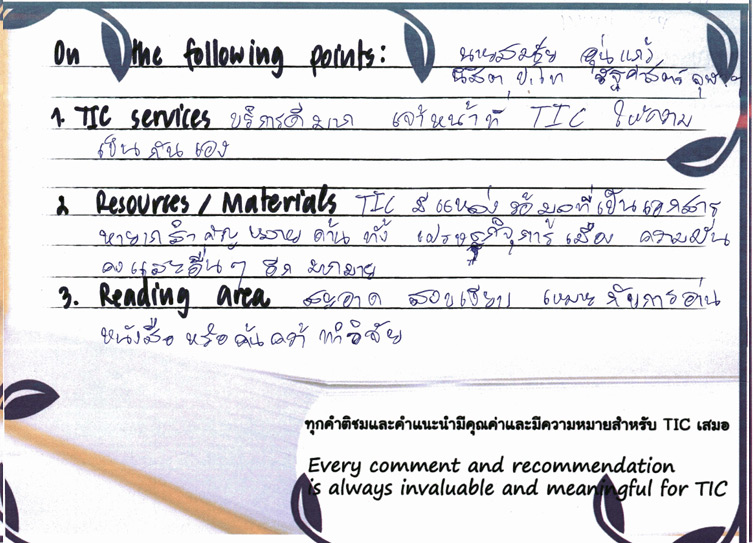 On the following points: นายสมชัย
นิสิต ป.โท รัฐศาสตร์ จุฬาฯ
1. TIC services บริการดีมาก เจ้าหน้าที่ TIC ให้ความ
เป็นกันเอง
2 Resources / Materials TIC มีแหล่งข้อมูลที่เป็นเอกสาร
หายากสำคัญหลายด้าน ทั้งเศรษฐกิจ การเมือง ความมั่น
คงและอื่นๆ อีกมากมาย
3. Reading area สะอาด สงบเงียบ เหมาะกับการอ่าน
หนังสือ หรือค้นคว้า ทำวิจัย
ทุกคำติชมและคำแนะนำมีคุณค่าและมีความหมายสำหรับ TIC เสมอ
Every comment and recommendation
is always invaluable and meaningful for TIC